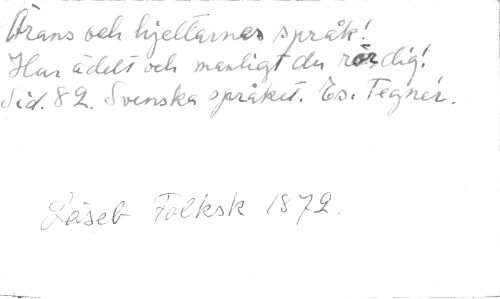 Ärans och hjeltarnas språk!
Hur ädelt och manligt du rör dig!
Sid. 82. Svenska språket. Es. Tegnér.
Läseb Folksk 1872.